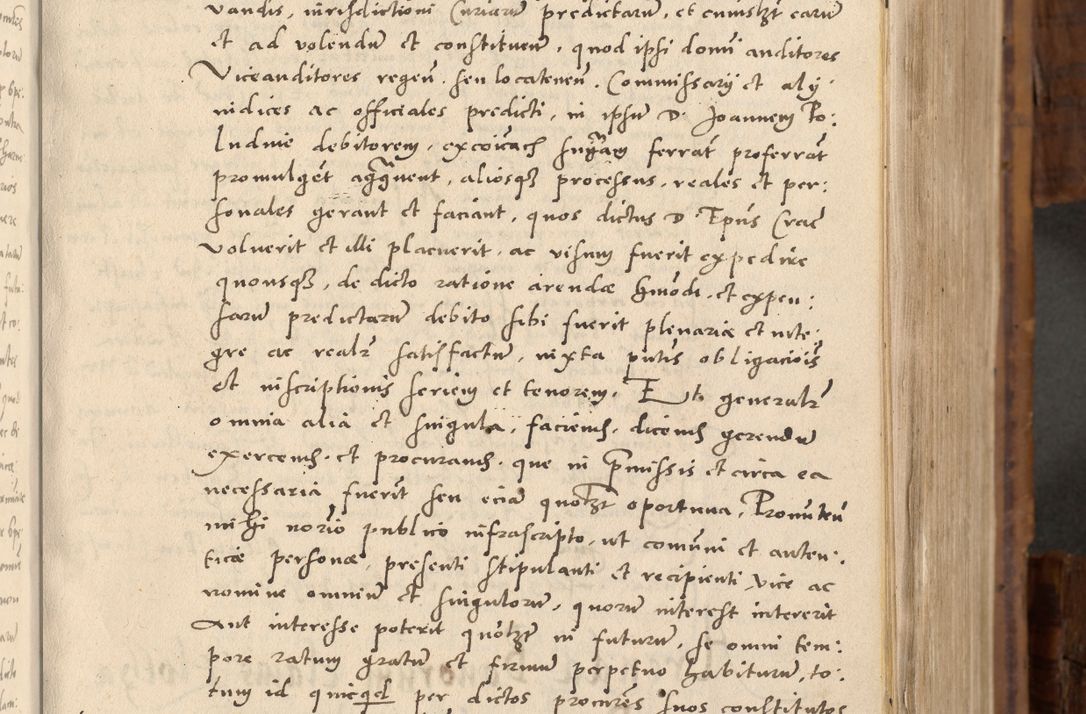 vandis, iurisdictioni Curiarum predictarum, et cuiuslibet earum
et ad volendum et constituendum, quod ipsi domini auditores
Viceauditores regentes, seu locatenentes, Commissarij et alij
iudices ac officiales predicti, in ipsum D. Joannem Po:
ludnie debitorem, excoicationis sententiam ferrant proferrant
promulgent aggravent, aliosque processus, reales et per:
sonales gerant et faciant, quos dictus D. Epus Crac
voluerit et illi placuerit, ac visum fuerit expedire
quousque, de dicto ratione arendae hmodi, et expen:
sarum predictarum debito sibi fuerit plenariae et inte:
gre ac realiter satisfactum, iuxta pntis obligaciois
et inscriptionis seriem et tenorem. Et generaliter
omnia alia et singula, faciendi, dicendi gerendum
exercendi, et procurandi, que in premissis et circa ea
necessaria fuerint seu eciam quomodolibet oportuna, Promittens
mihi notario publico infrascripto, ut communi et auten:
ticae personae, presenti stipulanti et recipienti vice ac
nomine omnium et singulorum, quorum interest intererit
aut interesse poterit quomodolibet in futurum, se omni tem:
pore ratum gratum et firmum perpetuo habiturum, to:
tum id quicquid per dictos procuratores suos constitutos